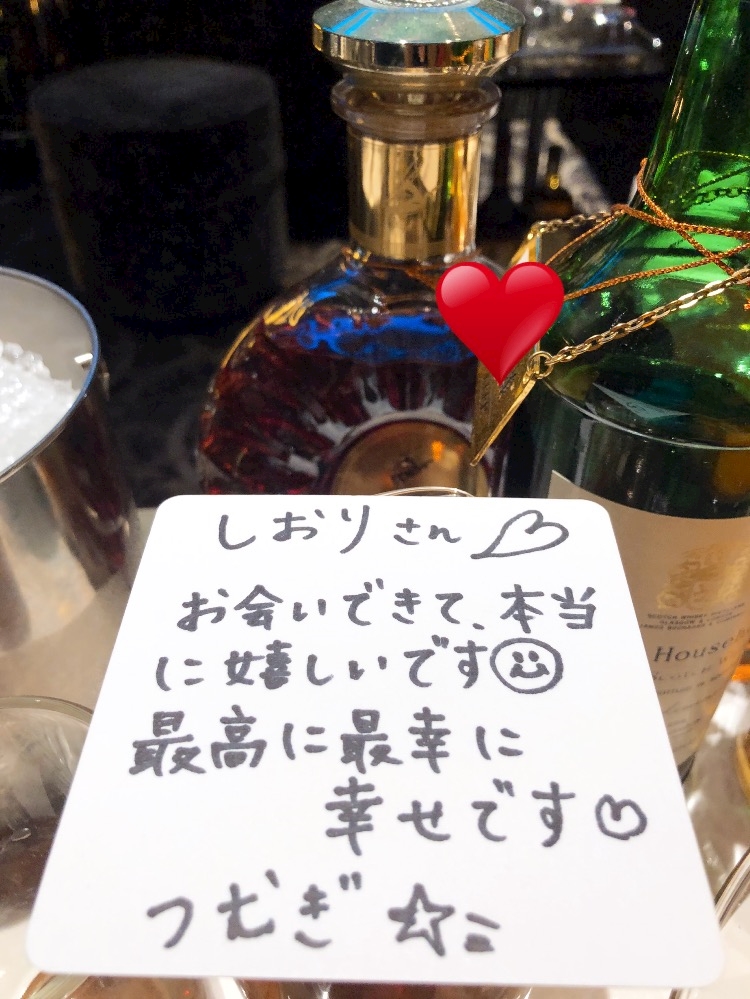 しおりさん♡
お会いできて、本当
に嬉しいです☺
最高に最幸に
幸せです♡
つむぎ☆ミ
House